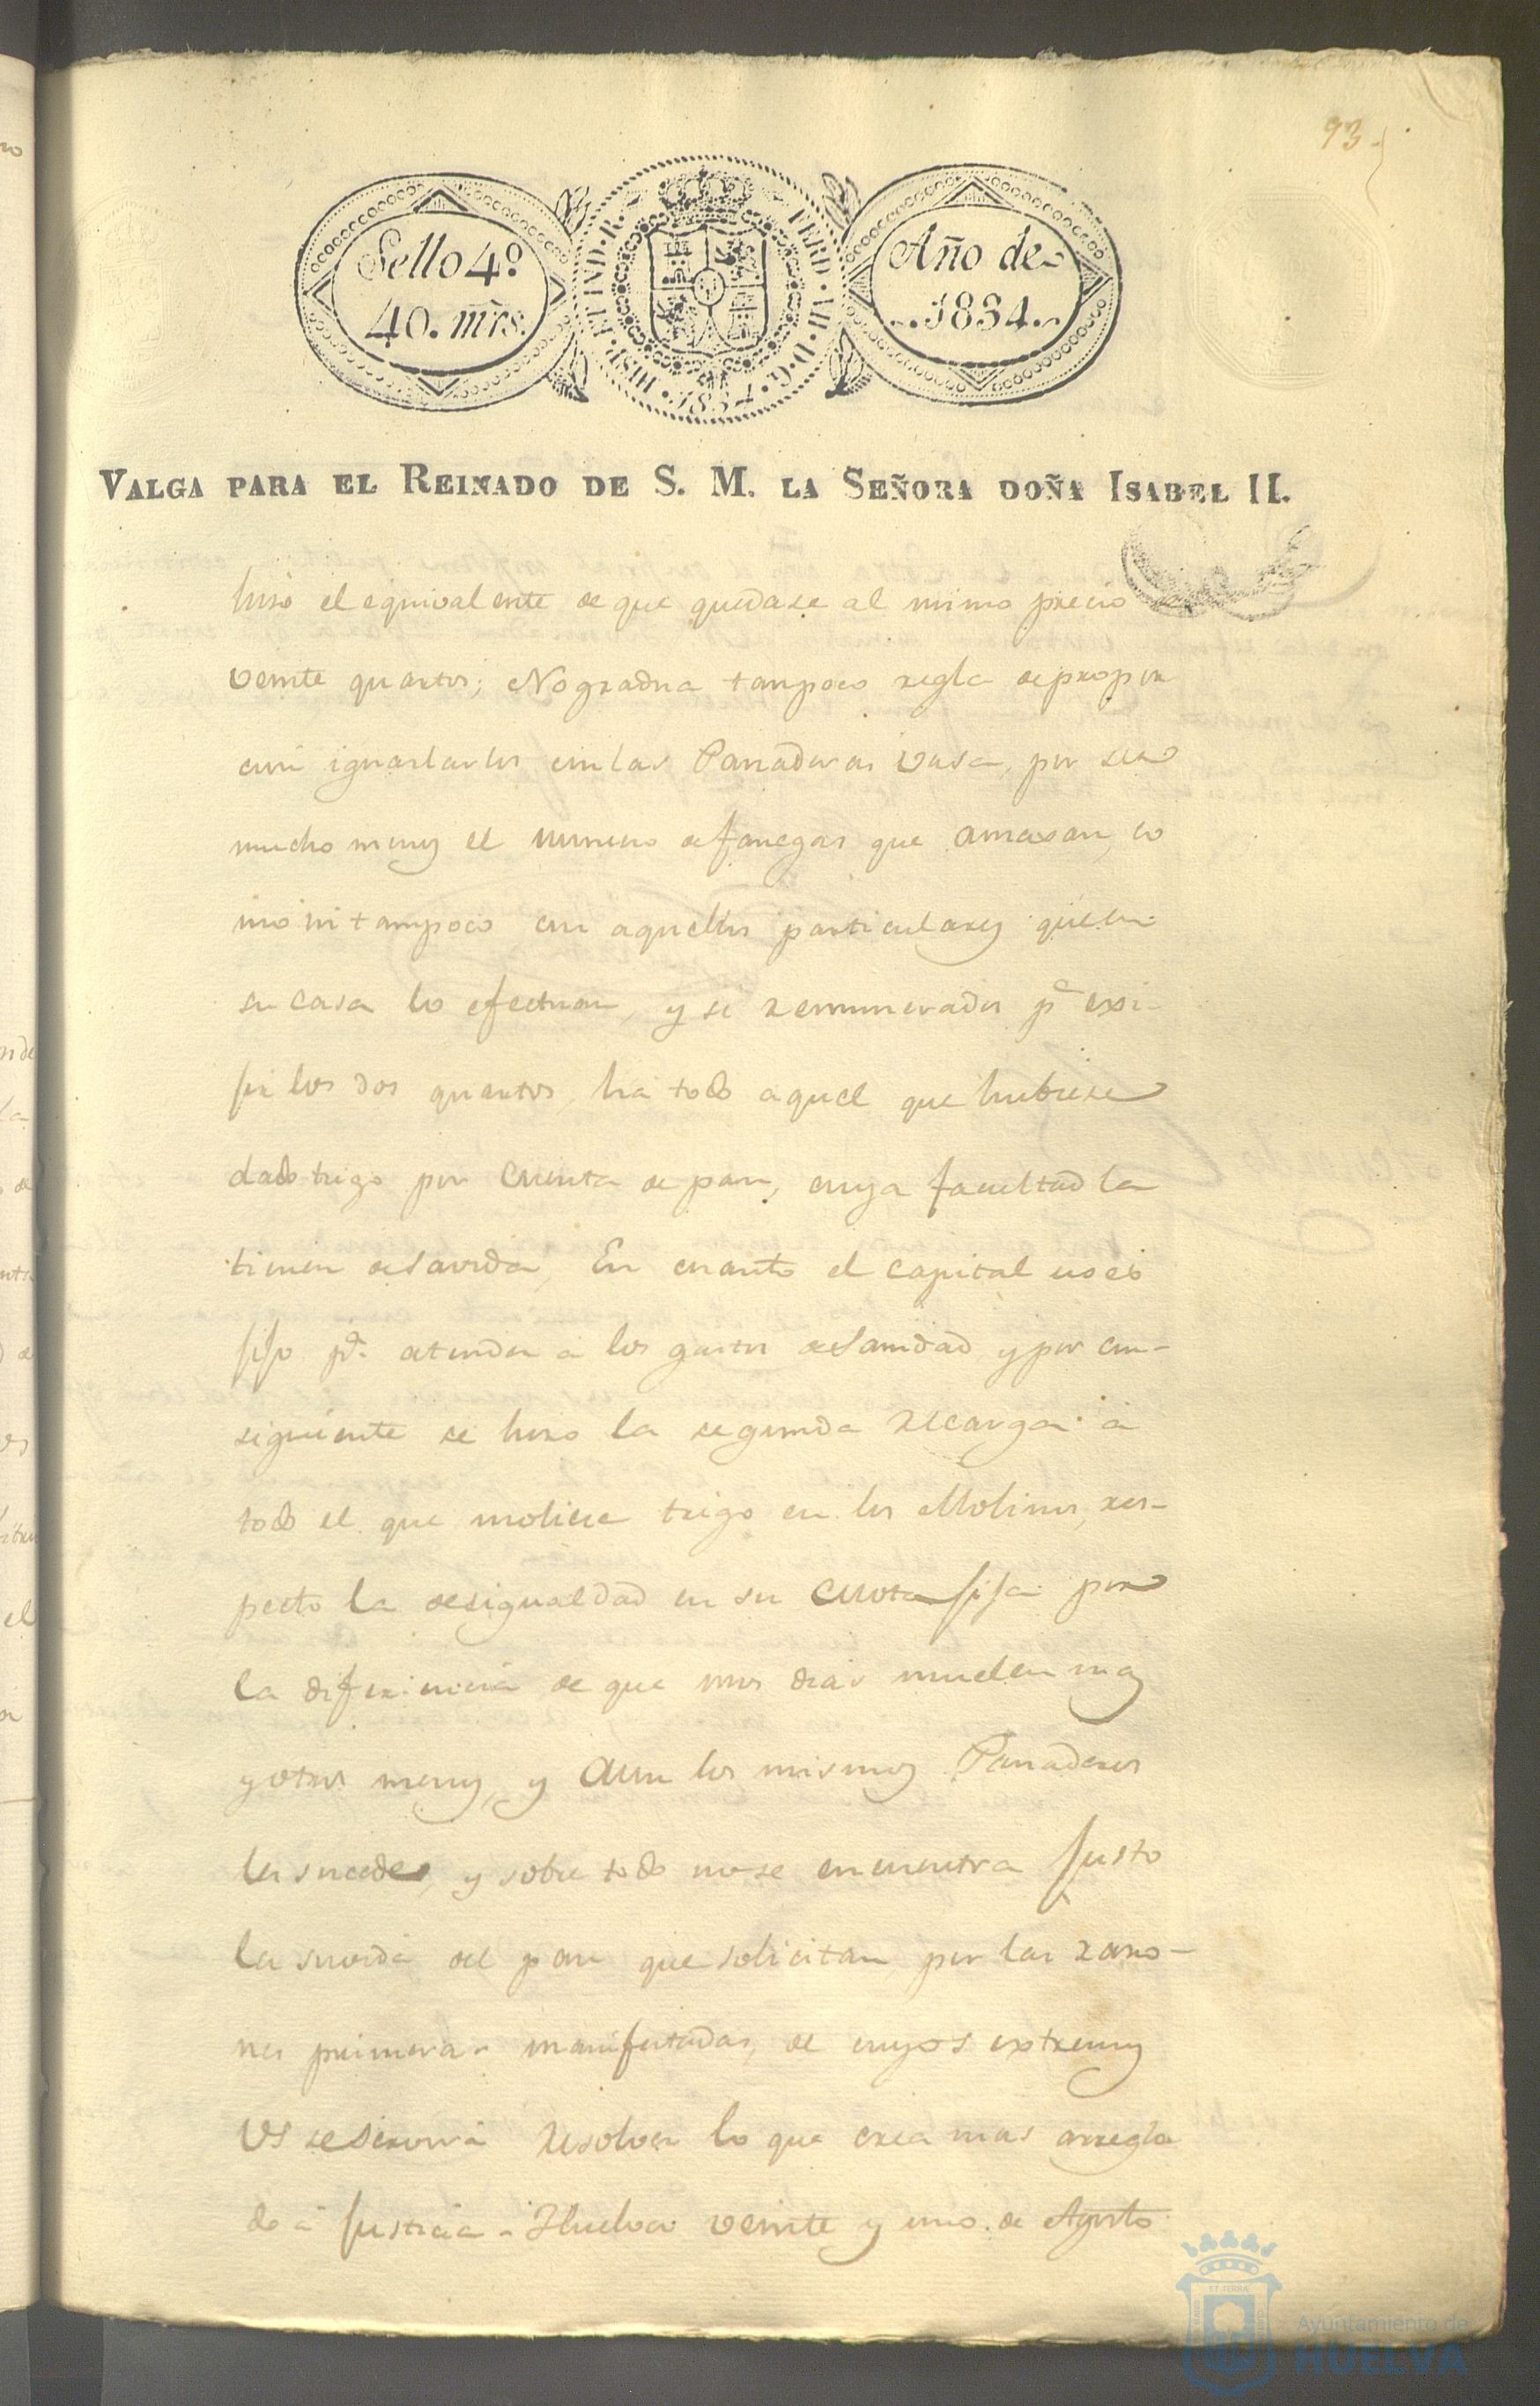 93.
Sello 4º
40. mrs.
HISP. ET IND. R. FERD. VII. D. G. 1834.
Año de
1834.
VALGA PARA EL REINADO DE S. M. LA SEÑORA DOÑA ISABEL II.
hiso el equivalente de que quedase al mismo precio de
veinte quartos; No gradua tampoco regla de propor
cion igualarlos con las Panaderas vasa, por ser
mucho menos el numero de fanegas que amasan, co
mo ni tampoco con aquellos particulares que en
su casa lo efectuan, y si remunerados pª exi-
jir los dos quartos, ha todo aquel que hubiese
dado trigo por cuenta de pan, cuya facultad la
tienen de savida, En cuanto el capital es
fijo pª. atender a los gastos de Sanidad y por con-
siguiente se hiso la segunda recarga a
todo el que moliese trigo en los Molinos, res-
pecto la desigualdad en su cuota fija por
la diferiencia de que unos dias muelen mas
y otros menos, y aun los mismos Panaderos
les sucede, y sobre todo no se encuentra justo
la suvida del pan que solicitan, por las razo-
nes primeras manifestadas, de cuyos extremos
VS se servirá resolver lo que crea mas arregla
do a Justicia - Huelva veinte y uno de Agosto
Ayuntamiento de
HUELVA